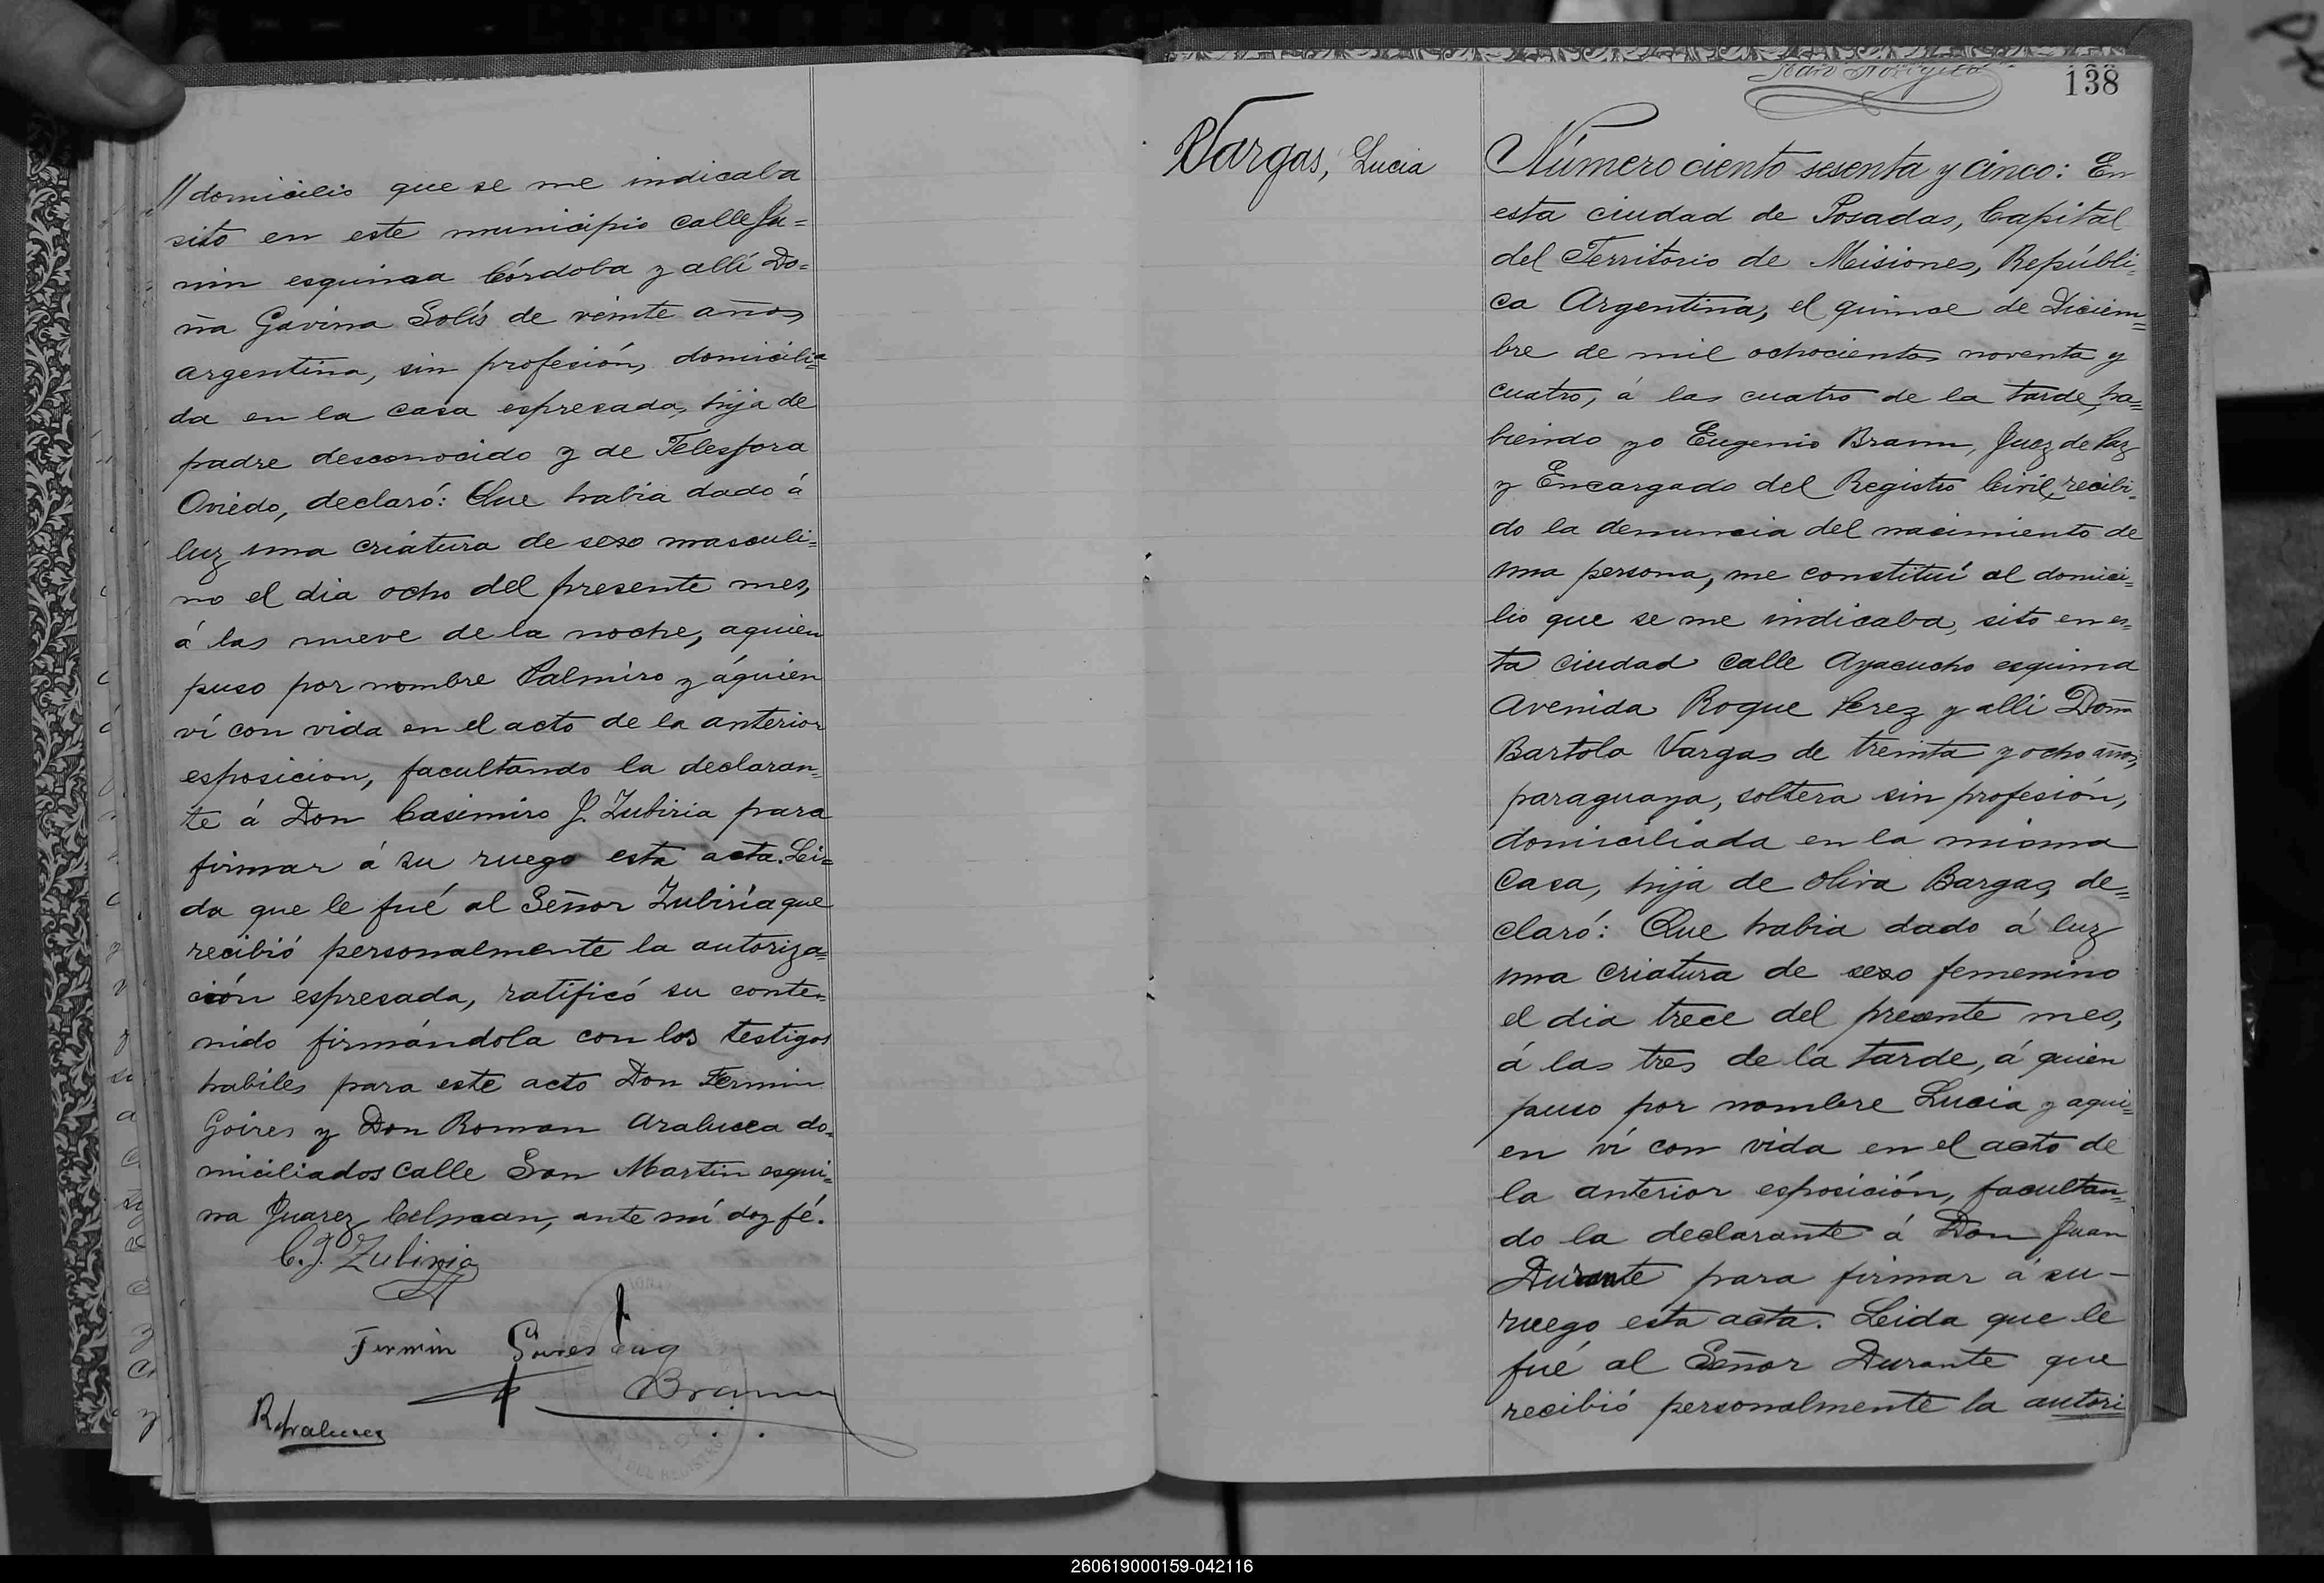 // domicilio que se me indicaba
sito en este municipio calle Ju=
nin esquina Córdoba y allí Do=
ña Gavina Solís de veinte años,
argentina, sin profesión, domicilia=
da en la casa espresada, hija de
padre desconocido y de Telesfora
Oviedo, declaró: Que habia dado á
luz una criatura de sexo masculi=
no el dia ocho del presente mes,
á las nueve de la noche, aquien
puso por nombre Palmiro y áquien
ví con vida en el acto de la anterior
esposicion, facultando la declaran=
te á Don Casimiro J. Zubiria para
firmar á su ruego esta acta. Lei=
da que le fué al Señor Zubiría que
recibió personalmente la autoriza=
ción espresada, ratificó su conte=
nido firmándola con los testigos
habiles para este acto Don Fermin
Goires y Don Roman Aralucea do=
miciliados calle San Martin esqui=
na Juarez Celman, ante mí doy fé.
C. J. Zubiria
Fermin Goires Eug
Braun
R. Aralucea
138
Vargas, Lucia
Número ciento sesenta y cinco: En
esta ciudad de Posadas, Capital
del Territorio de Misiones, Repúbli=
ca Argentina, el quince de Diciem=
bre de mil ochocientos noventa y
cuatro, á las cuatro de la tarde, ha=
biendo yo Eugenio Braun, Juez de Paz
y Encargado del Registro Civil, recibi=
do la denuncia del nacimiento de
una persona, me constituí al domici=
lio que se me indicaba, sito en es=
ta ciudad calle Ayacucho esquina
Avenida Roque Perez y alli Doña
Bartola Vargas de treinta y ocho años,
paraguaya, soltera sin profesión,
domiciliada en la misma
casa, hija de Oliva Bargas, de=
claró: Que habia dado á luz
una criatura de sexo femenino
el dia trece del presente mes,
á las tres de la tarde, á quien
puso por nombre Lucia y aqui=
en ví con vida en el acto de
la anterior esposición, facultan=
do la declarante á Don Juan
Durante para firmar á su-
ruego esta acta. Leida que le
fué al Señor Durante que
recibió personalmente la autori
260619000159-042116